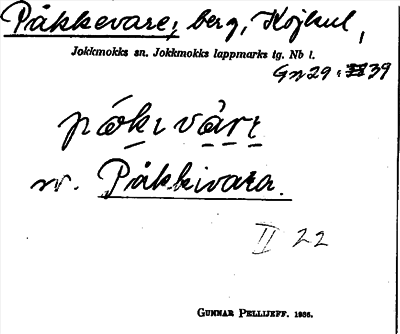 Påkkevare, berg, Kojkul,
Jokkmokks sn. Jokkmokks lappmarks tg. Nb l.
Gn 29: 39
pókı vårı
sv. Påkkivara.
II 22
GUNNAR PELLIJEFF. 1935.